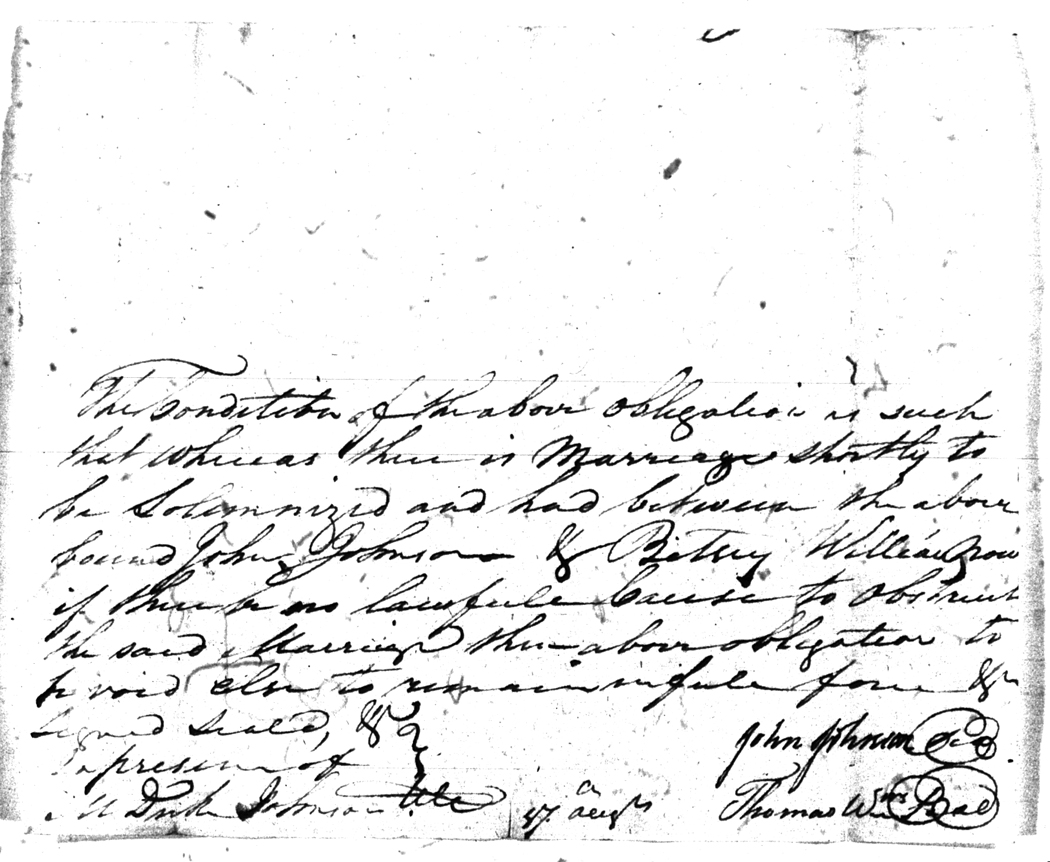 The Condition of the above obligation is such
that whereas there is Marriage shortly to
be Solemnized and had between the above
bound John Johnson & Betsey William now
if there be no lawfule Cause to Obstruct
the said Marriage then above obligation to
be void else to remain in fule force &c
Signed Seald, &c
In presence of
John Johnson Seal
M Duke Johnson 27 augt Thomas Wms Seal